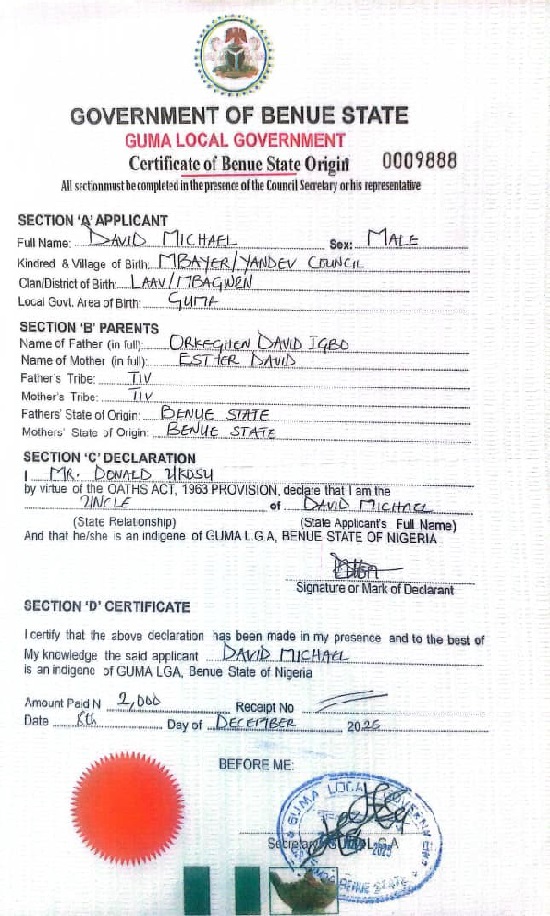 GOVERNMENT OF BENUE STATE
GUMA LOCAL GOVERNMENT
Certificate of Benue State Origin 0009888
All sectionmust be completed in the presence of the Council Secretary or his representative
SECTION 'A' APPLICANT
Full Name: DAVID MICHAEL Sex: MALE
Kindred & Village of Birth: MBAYER/YANDEV COUNCIL
Clan/District of Birth: LAAV/MBAGWEN
Local Govt. Area of Birth: GUMA
SECTION 'B' PARENTS
Name of Father (in full): ORKEGHEN DAVID IGBO
Name of Mother (in full): ESTHER DAVID
Father's Tribe: TIV
Mother's Tribe: TIV
Fathers' State of Origin: BENUE STATE
Mothers' State of Origin: BENUE STATE
SECTION 'C' DECLARATION
I MR. DONALD UKOSU
by virtue of the OATHS ACT, 1963 PROVISION, declare that I am the
UNCLE of DAVID MICHAEL
(State Relationship) (State Applicant's Full Name)
And that he/she is an indigene of GUMA L.G.A, BENUE STATE OF NIGERIA
Signature or Mark of Declarant
SECTION 'D' CERTIFICATE
I certify that the above declaration has been made in my presence and to the best of
My knowledge the said applicant DAVID MICHAEL
is an indigene of GUMA LGA, Benue State of Nigeria
Amount Paid N 2,000 Receipt No
Date 8th Day of DECEMBER 2025
BEFORE ME:
GUMA LOCAL GOVERNMENT
Secretary GUMA L.G.A
2025
BENUE STATE